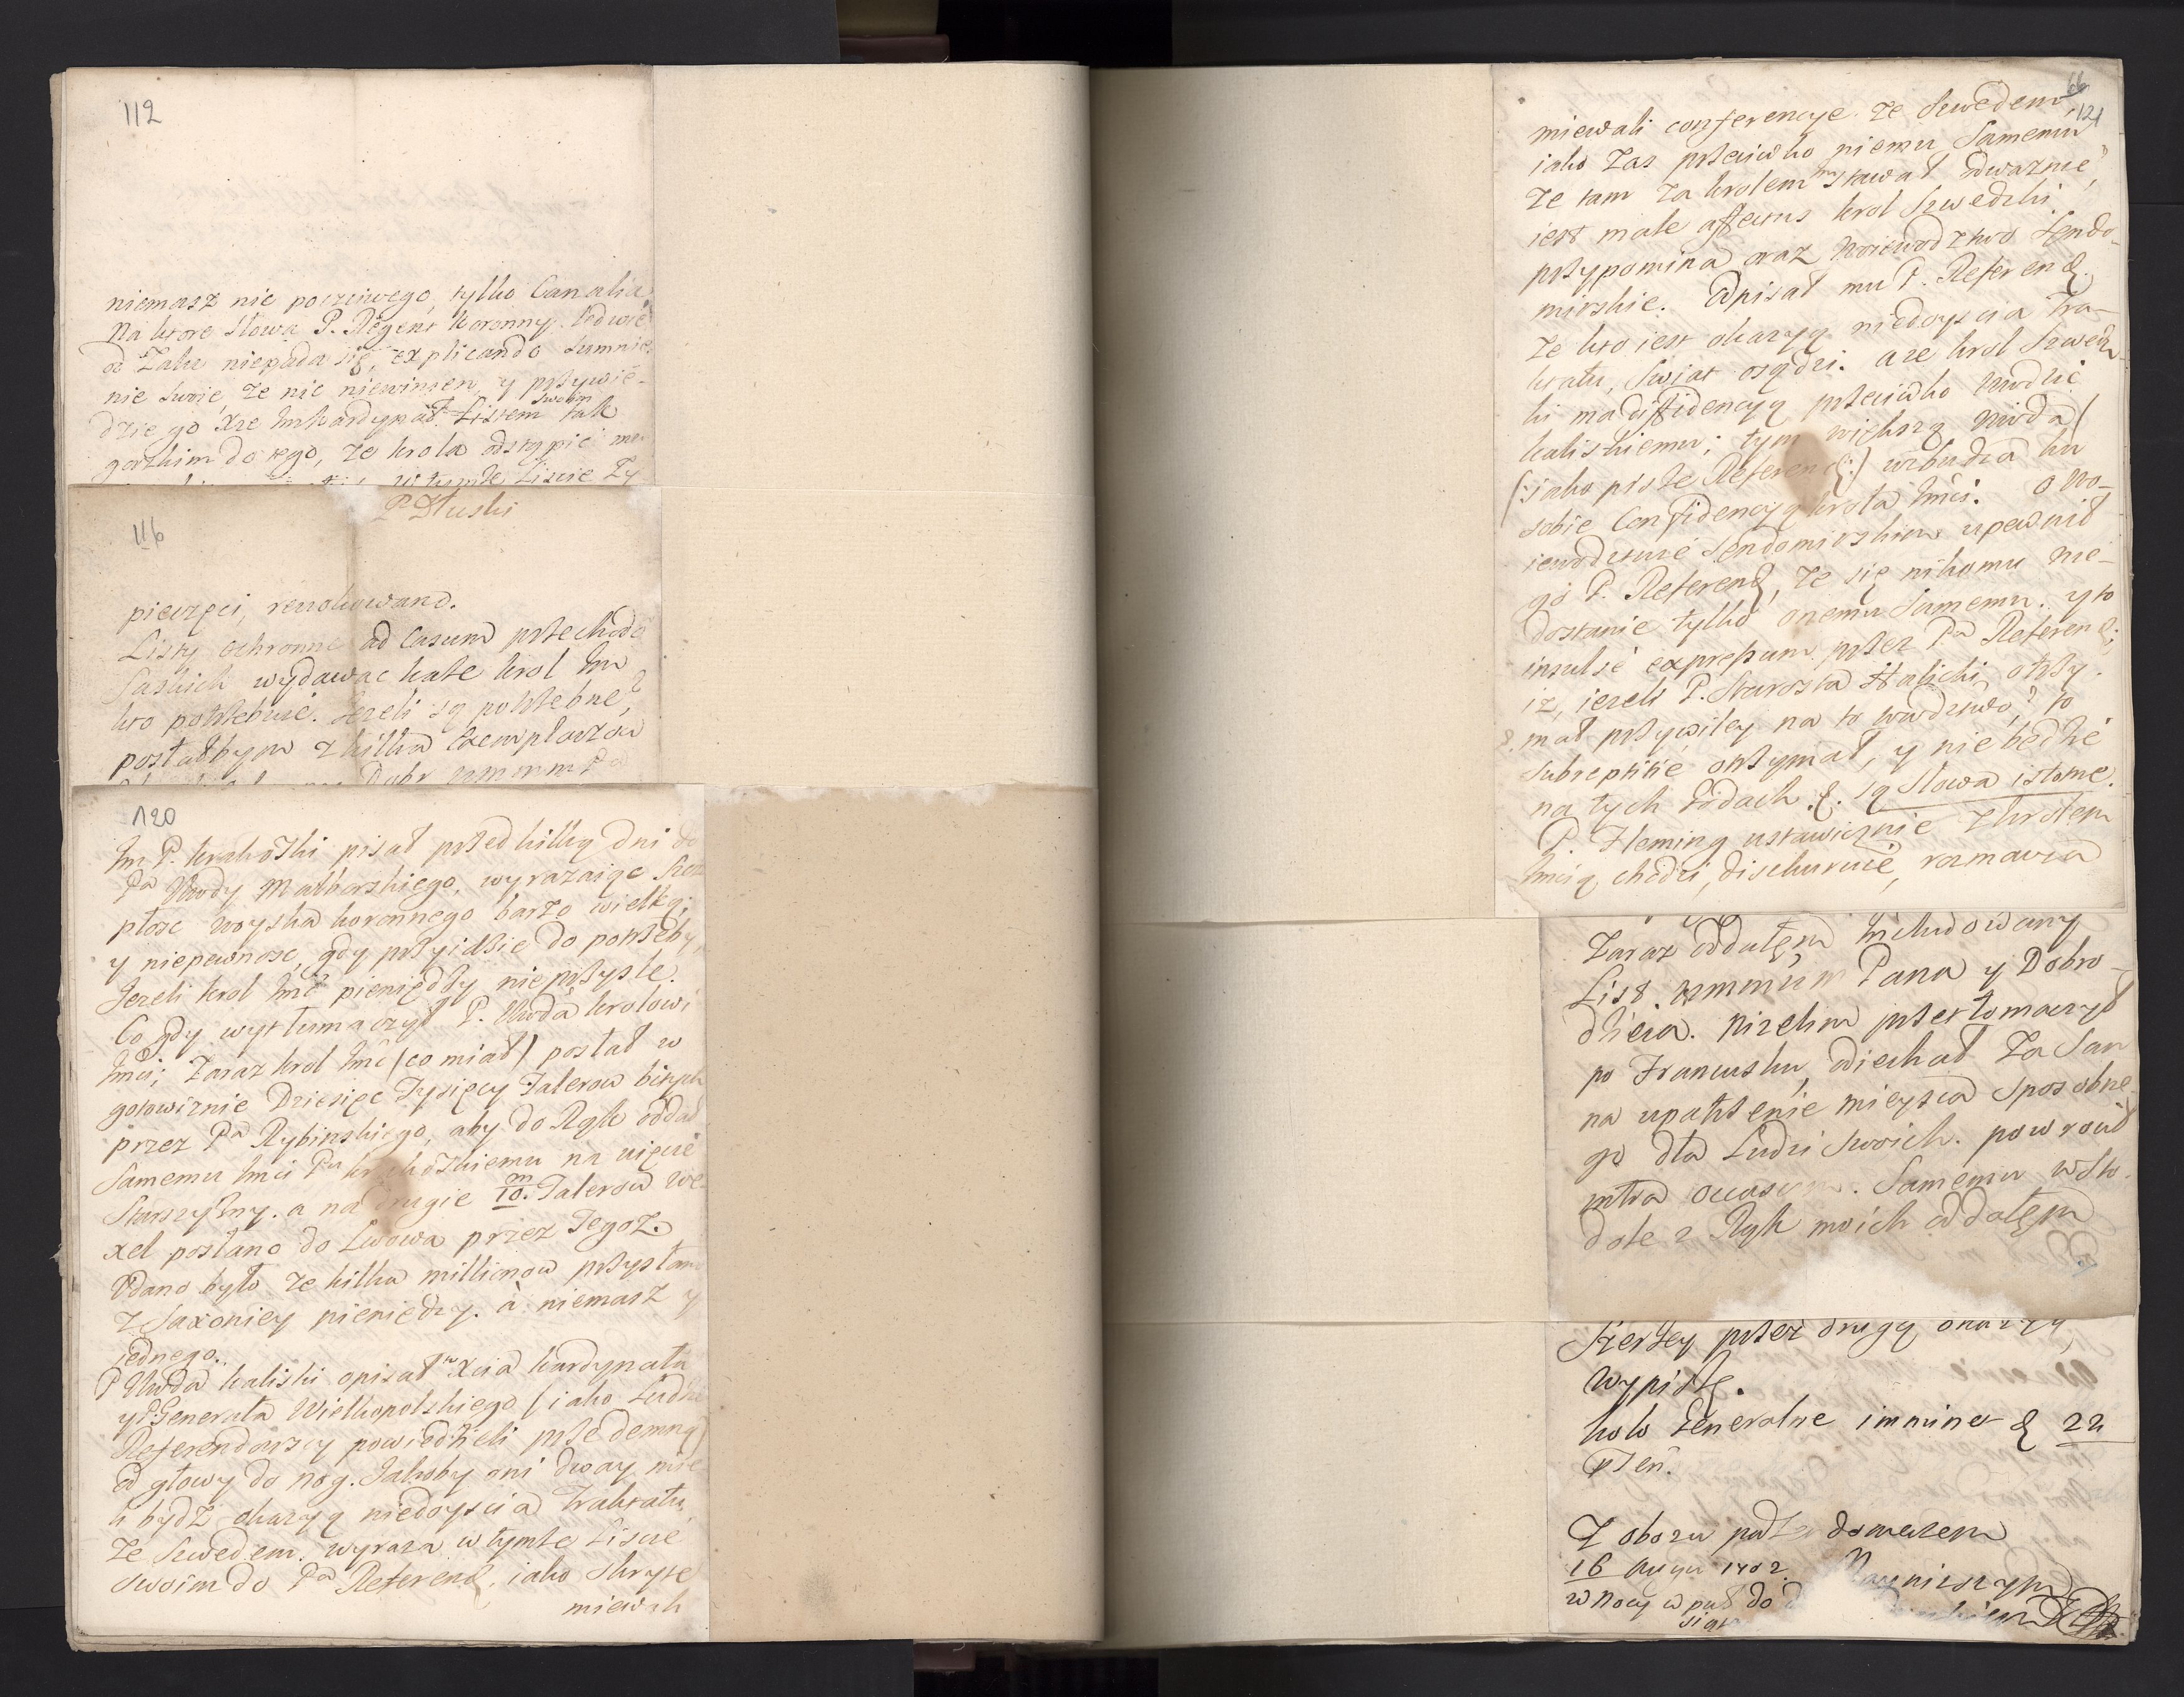 112
niemasz nic poczciwego, tylko Canalia
Na ktore słowa P. Regent koronny ledwie
od żalu niepada się, explicando sumnie-
nie swoie, że nic niewinien, y przywie-
dzie go Xże Jmć kardynał Listem swoim tak
gorzkim do tego, że krola odstąpić mu
w tymże Liscie
P Dłuski
116
pieczęci, rewokowano.
Listy ochronne ad Casum przechodu
Saskich wydawać każe krol Jm
kto potrzebuie. Jeżeli są potrzebne,
posłałbym z kilka Exemplarzow
120
Jm P. krakoski pisał przed kilką dni do
Pa Wwdy Malborskiego, wyrażaiąc szczu
płosc woyska koronnego barzo wielką;
y niepewnosc, gdy przyidzie do potrzeby,
Jezeli krol Jmć pieniędzy nieprzysle.
Co gdy wytłumaczył P. Wwda krolowi
Jmci; zaraz krol Jmć (co miał) posłał w
gotowiznie Dziesięc Tysięcy Talerow bitych
przez Pa Rybinskiego, aby do Rąk oddał
Samemu Jmci Pu krakoskiemu na ujęcie
Starszyzny. a na drugie 10. m Talerow we-
xel posłano do Lwowa przez Tegoż.
Udano było że kilka millionow przysłano
z Saxoniey pieniędzy. à niemasz y
jednego.
P Wwda kaliski opisał Xcia kardynała
y P Generała Wielkopolskiego (iako Ludzie
Referendarscy powiedzieli przedemną)
od głowy do nog. Jakoby oni dway mie
li bydź okazyą niedoyscia Traktatu
ze Szwedem. wyraża w tymże Liscie
swoim do Pa Referend. iako skryte
miewali
66
121
miewali conferencye ze Szwedem,
iako zas przeciwko niemu Samemu
że tam za krolem stawał odważnie,
iest male affectus krol Szwedzki.
przypomina oraz Woiewodztwo Sendo-
mirskie. Odpisał mu P. Referend.
że kto iest okazyą niedoyscia Tra-
ktatu, Swiat osądzi. a że krol Szwedz-
ki ma diffidencyą przeciwko Wwdzie
kaliskiemu; tym większą Wwda
(: iako pisze Referend:) wzbudza ku
sobie Confidencyą krola Jmci. o Wo-
iewodztwie Sendomirskim upewnił
go P. Referend, że się nikomu nie-
dostanie tylko onemu Samemu. y to
insulse expressum przez Pa Referend:
iż, ieżeli P. Starosta Halicki otrzy-
mał przywiley na to wwdztwo, to
subreptitie otrzymał, y nie będzie
na tych Rodach &. są słowa istotne.
P. Fleming ustawicznie z krolem
Jmcią chodzi, dischuruie, rozmawia
Zaraz oddałem inkludowany
List WMMM Pana y Dobro-
dzieia. Niżelim przetłomaczył
po Francusku, odiechał za San
na upatrzenie mieysca sposobne
go dla Ludzi swoich. powrocił
intra occasum. Samemu w Sto-
dole z Rąk moich oddałem
Szerzey przez drugą okazyą,
wypiszę.
koło Generalne imminet & 22
pسen.
Z obozu pod
16 Augu 1702.
w nocy